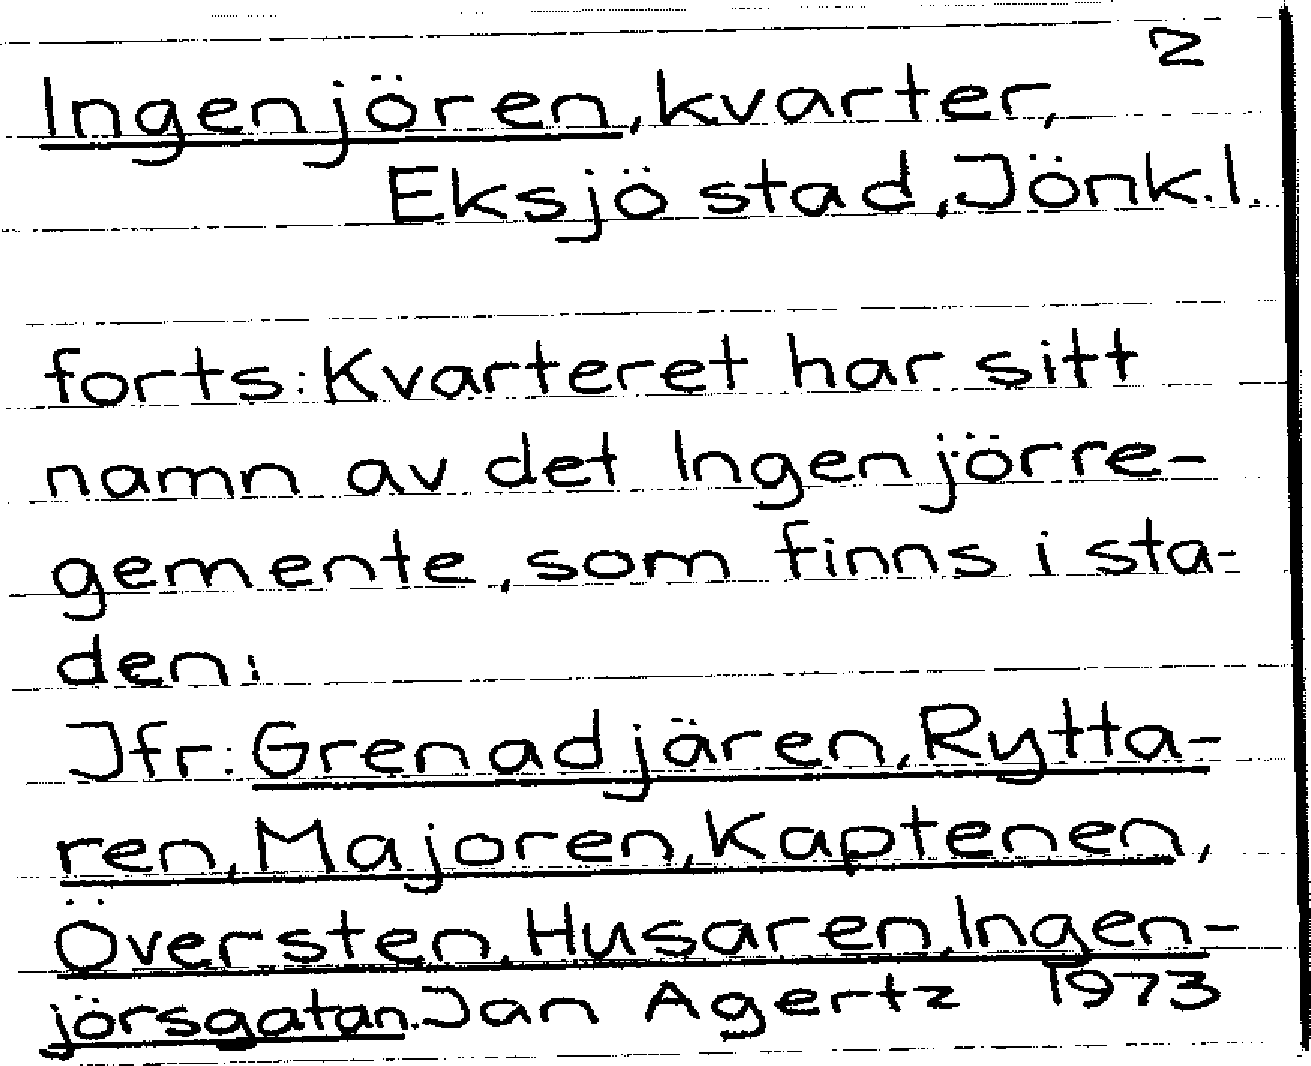 2
Ingenjören, kvarter,
Eksjö stad, Jönk.l.
forts: Kvarteret har sitt
namn av det Ingenjörre-
gemente, som finns i sta-
den:
Jfr: Grenadjären, Rytta-
ren, Majoren, Kaptenen,
Översten, Husaren, Ingen-
jörsgatan. Jan Agertz 1973